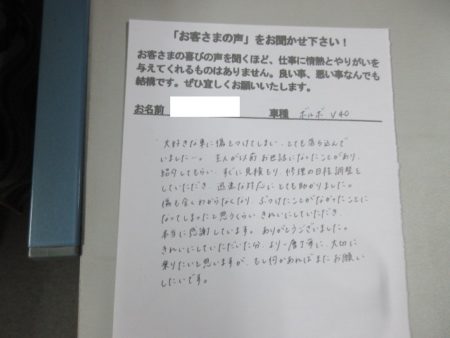 「お客さまの声」をお聞かせ下さい！
お客さまの喜びの声を聞くほど、仕事に情熱とやりがいを
与えてくれるものはありません。良い事、悪い事なんでも
結構です。ぜひ宜しくお願いいたします。
お名前 車種 ボルボ V40
大好きな車に傷をつけてしまい、とても落ち込んで
いました…。主人が以前お世話になったことがあり、
紹介してもらい、すぐに見積もり、修理の日程調整を
していただき、迅速な対応にとても助かりました。
傷も全くわからなくなり、ぶつけたことがなかったことに
なってしまったと思うくらいきれいにしていただき、
本当に感謝しています。ありがとうございました。
きれいにしていただいた分、より一層丁寧に、大切に
乗りたいと思いますが、もし何かあればまたお願い
したいです。